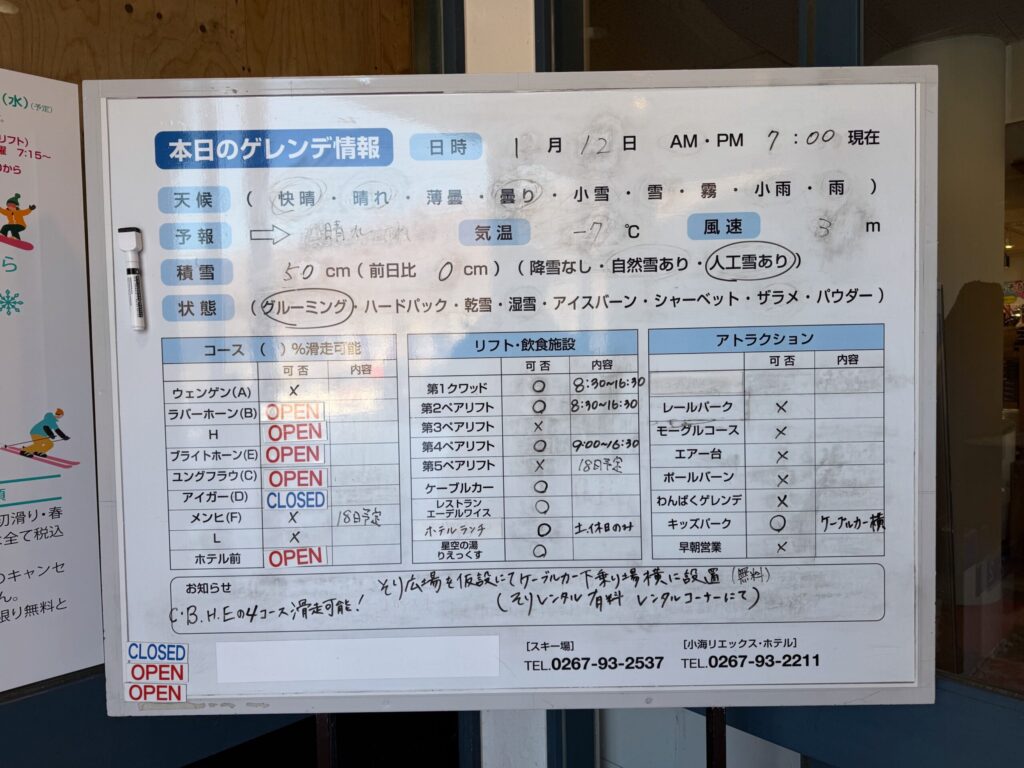 (水)(予定)
リフト)
曜 7:15～
切滑り・春
全て税込
のキャンセ
ん。
限り無料と
本日のゲレンデ情報 日時 1月12日 AM・PM 7:00 現在
天候 (快晴・晴れ・薄曇・曇り・小雪・雪・霧・小雨・雨)
予報 ⇨ 気温 -7℃ 風速 3m
積雪 50cm(前日比 0cm)(降雪なし・自然雪あり・人工雪あり)
状態 (グルーミング・ハードパック・乾雪・湿雪・アイスバーン・シャーベット・ザラメ・パウダー)
コース ( )%滑走可能
可否 内容
ウェンゲン(A) ×
ラバーホーン(B) OPEN
H OPEN
ブライトホーン(E) OPEN
ユングフラウ(C) OPEN
アイガー(D) CLOSED
メンヒ(F) × 18日予定
L ×
ホテル前 OPEN
リフト・飲食施設
可否 内容
第1クワッド ○ 8:30~16:30
第2ペアリフト ○ 8:30~16:30
第3ペアリフト ×
第4ペアリフト ○ 9:00~16:30
第5ペアリフト × 18日予定
ケーブルカー ○
レストラン
エーデルワイス ○
ホテルランチ ○ 土休日のみ
星空の湯
りえっくす ○
アトラクション
可否 内容
レールパーク ×
モーグルコース ×
エアー台 ×
ポールバーン ×
わんぱくゲレンデ ×
キッズパーク ○ ケーブルカー横
早朝営業 ×
お知らせ
そり広場を仮設にてケーブルカー下乗り場横に設置(無料)
(そりレンタル有料 レンタルコーナーにて)
C・B.H.Eの4コース滑走可能!
CLOSED
OPEN
OPEN
[スキー場]
TEL.0267-93-2537
[小海リエックス・ホテル]
TEL.0267-93-2211